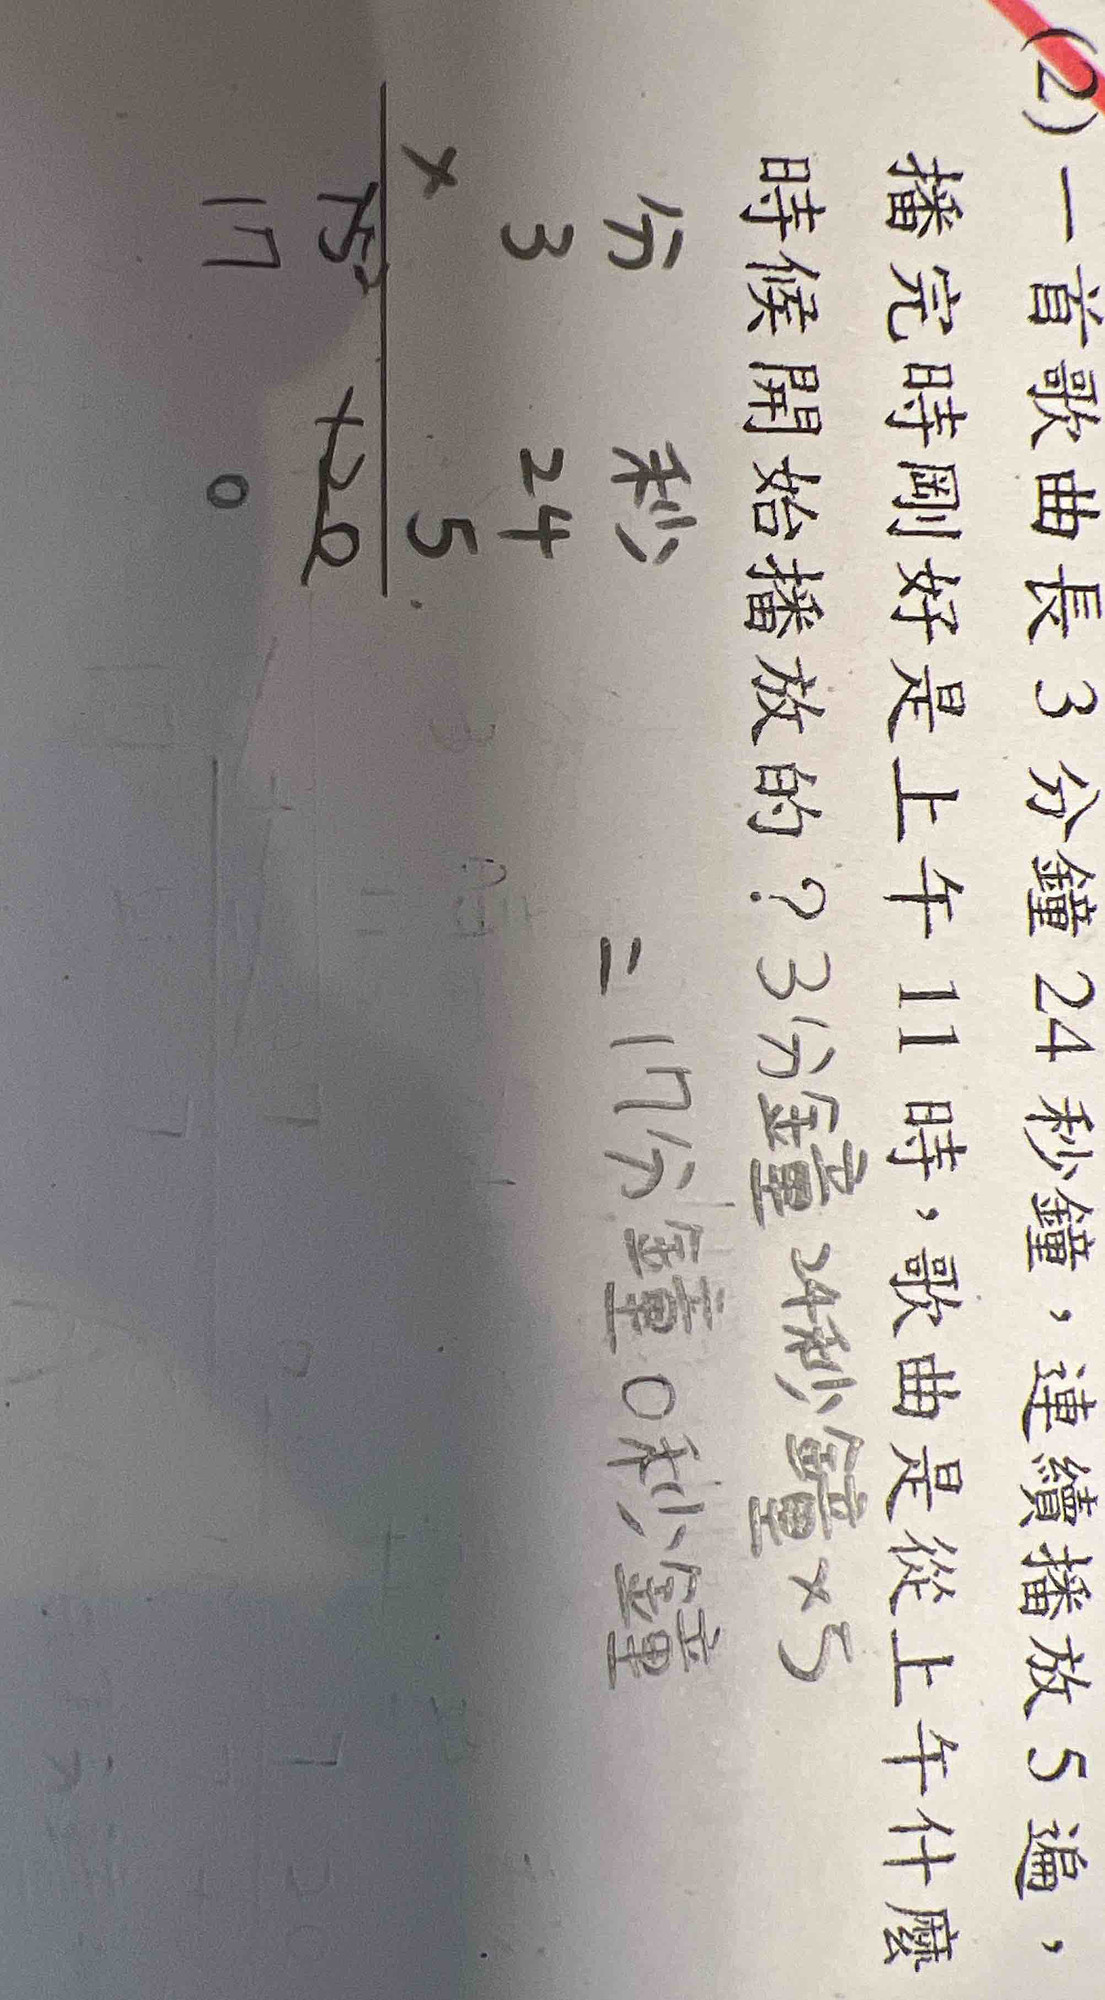 (2) 一首歌曲長 3 分鐘 24 秒鐘，連續播放 5 遍，
播完時剛好是上午 11 時，歌曲是從上午什麼
時候開始播放的？3分鐘24秒鐘×5
=17分鐘0秒鐘
分 秒
3 24
× 5
15 120
17 0